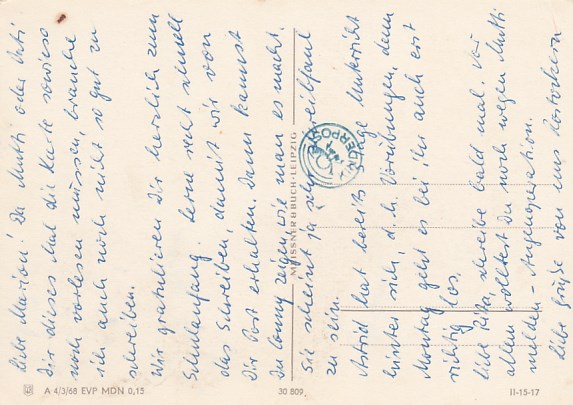 Liebe Marion! Da Mutti oder Vati
Dir dieses Mal die Karte sowieso
noch vorlesen müssen, brauche
ich auch noch nicht so gut zu
schreiben.
Wir gratulieren Dir herzlich zum
Schulanfang. Lerne recht schnell
das Schreiben, damit wir von
Dir Post erhalten. Dann kannst
Du Conny zeigen, wie man es macht.
Sie scheint ja sehr schreibfaul
zu sein.
Astrid hat bereits Unterricht
hinter sich, d.h. Vorübungen, denn
Montag geht es bei ihr auch erst
richtig los.
Liebe Rita, schreibe bald mal. Vor
allem wolltest Du noch wegen Mutti
melden - Augenoperation.
Liebe Grüße von uns Rostockern
MEISSNER & BUCH · LEIPZIG
A 4/3/68 EVP MDN 0,15
30 809
II-15-17